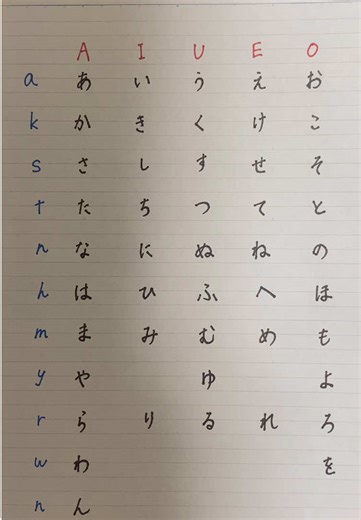 A I U E O
a あ い う え お
k か き く け こ
s さ し す せ そ
t た ち つ て と
n な に ぬ ね の
h は ひ ふ へ ほ
m ま み む め も
y や ゆ よ
r ら り る れ ろ
w わ を
n ん